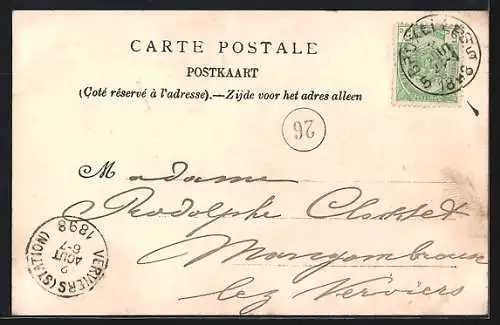 CARTE POSTALE
POSTKAART
(Çoté réservé à l'adresse).—Zijde voor het adres alleen
26
Madame
Rodolphe
Mangombroux
lez Verviers
VERVIERS (STATION)
2
AOUT
6-7
1898